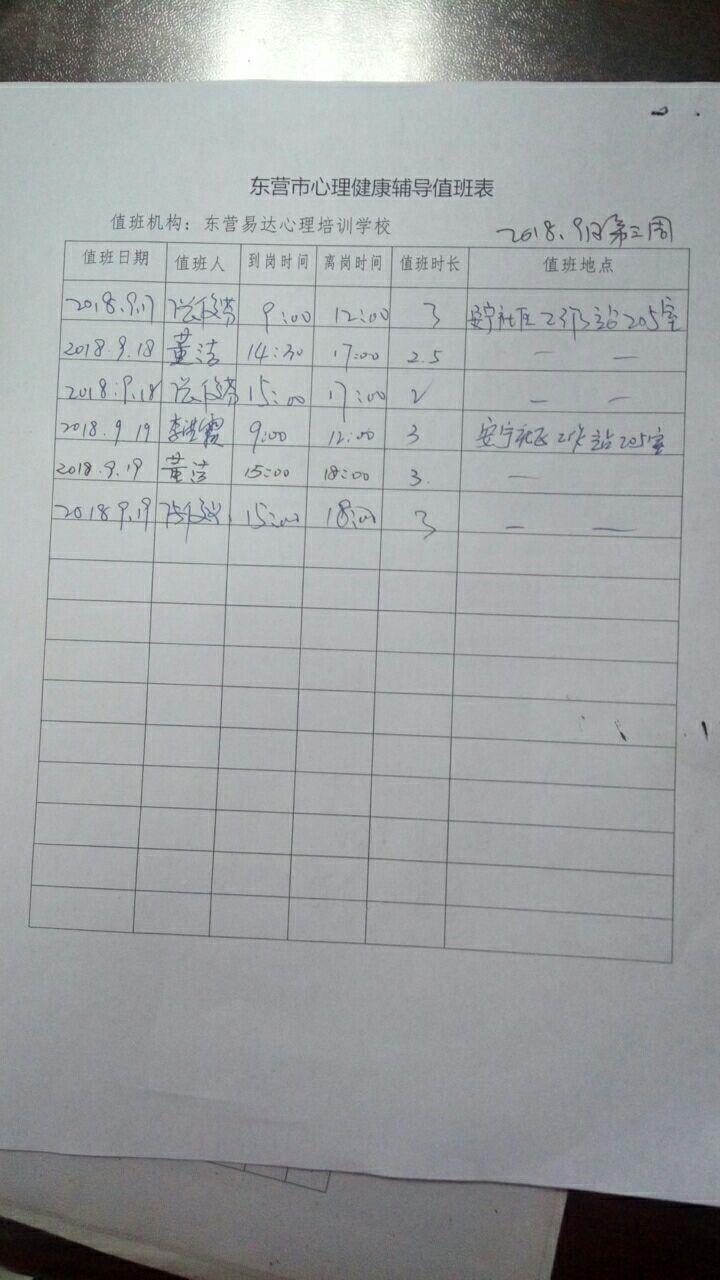 东营市心理健康辅导值班表
值班机构：东营易达心理培训学校 2018.9月第三周
值班日期 值班人 到岗时间 离岗时间 值班时长 值班地点
2018.9.17 9:00 12:00 3 安宁社区工作站205室
2018.9.18 董洁 14:30 17:00 2.5 — —
2018.9.18 15:00 17:00 2 — —
2018.9.19 李洪霞 9:00 12:00 3 安宁社区工作站205室
2018.9.19 董洁 15:00 18:00 3. —
2018.9.19 15:00 18:00 3 — —